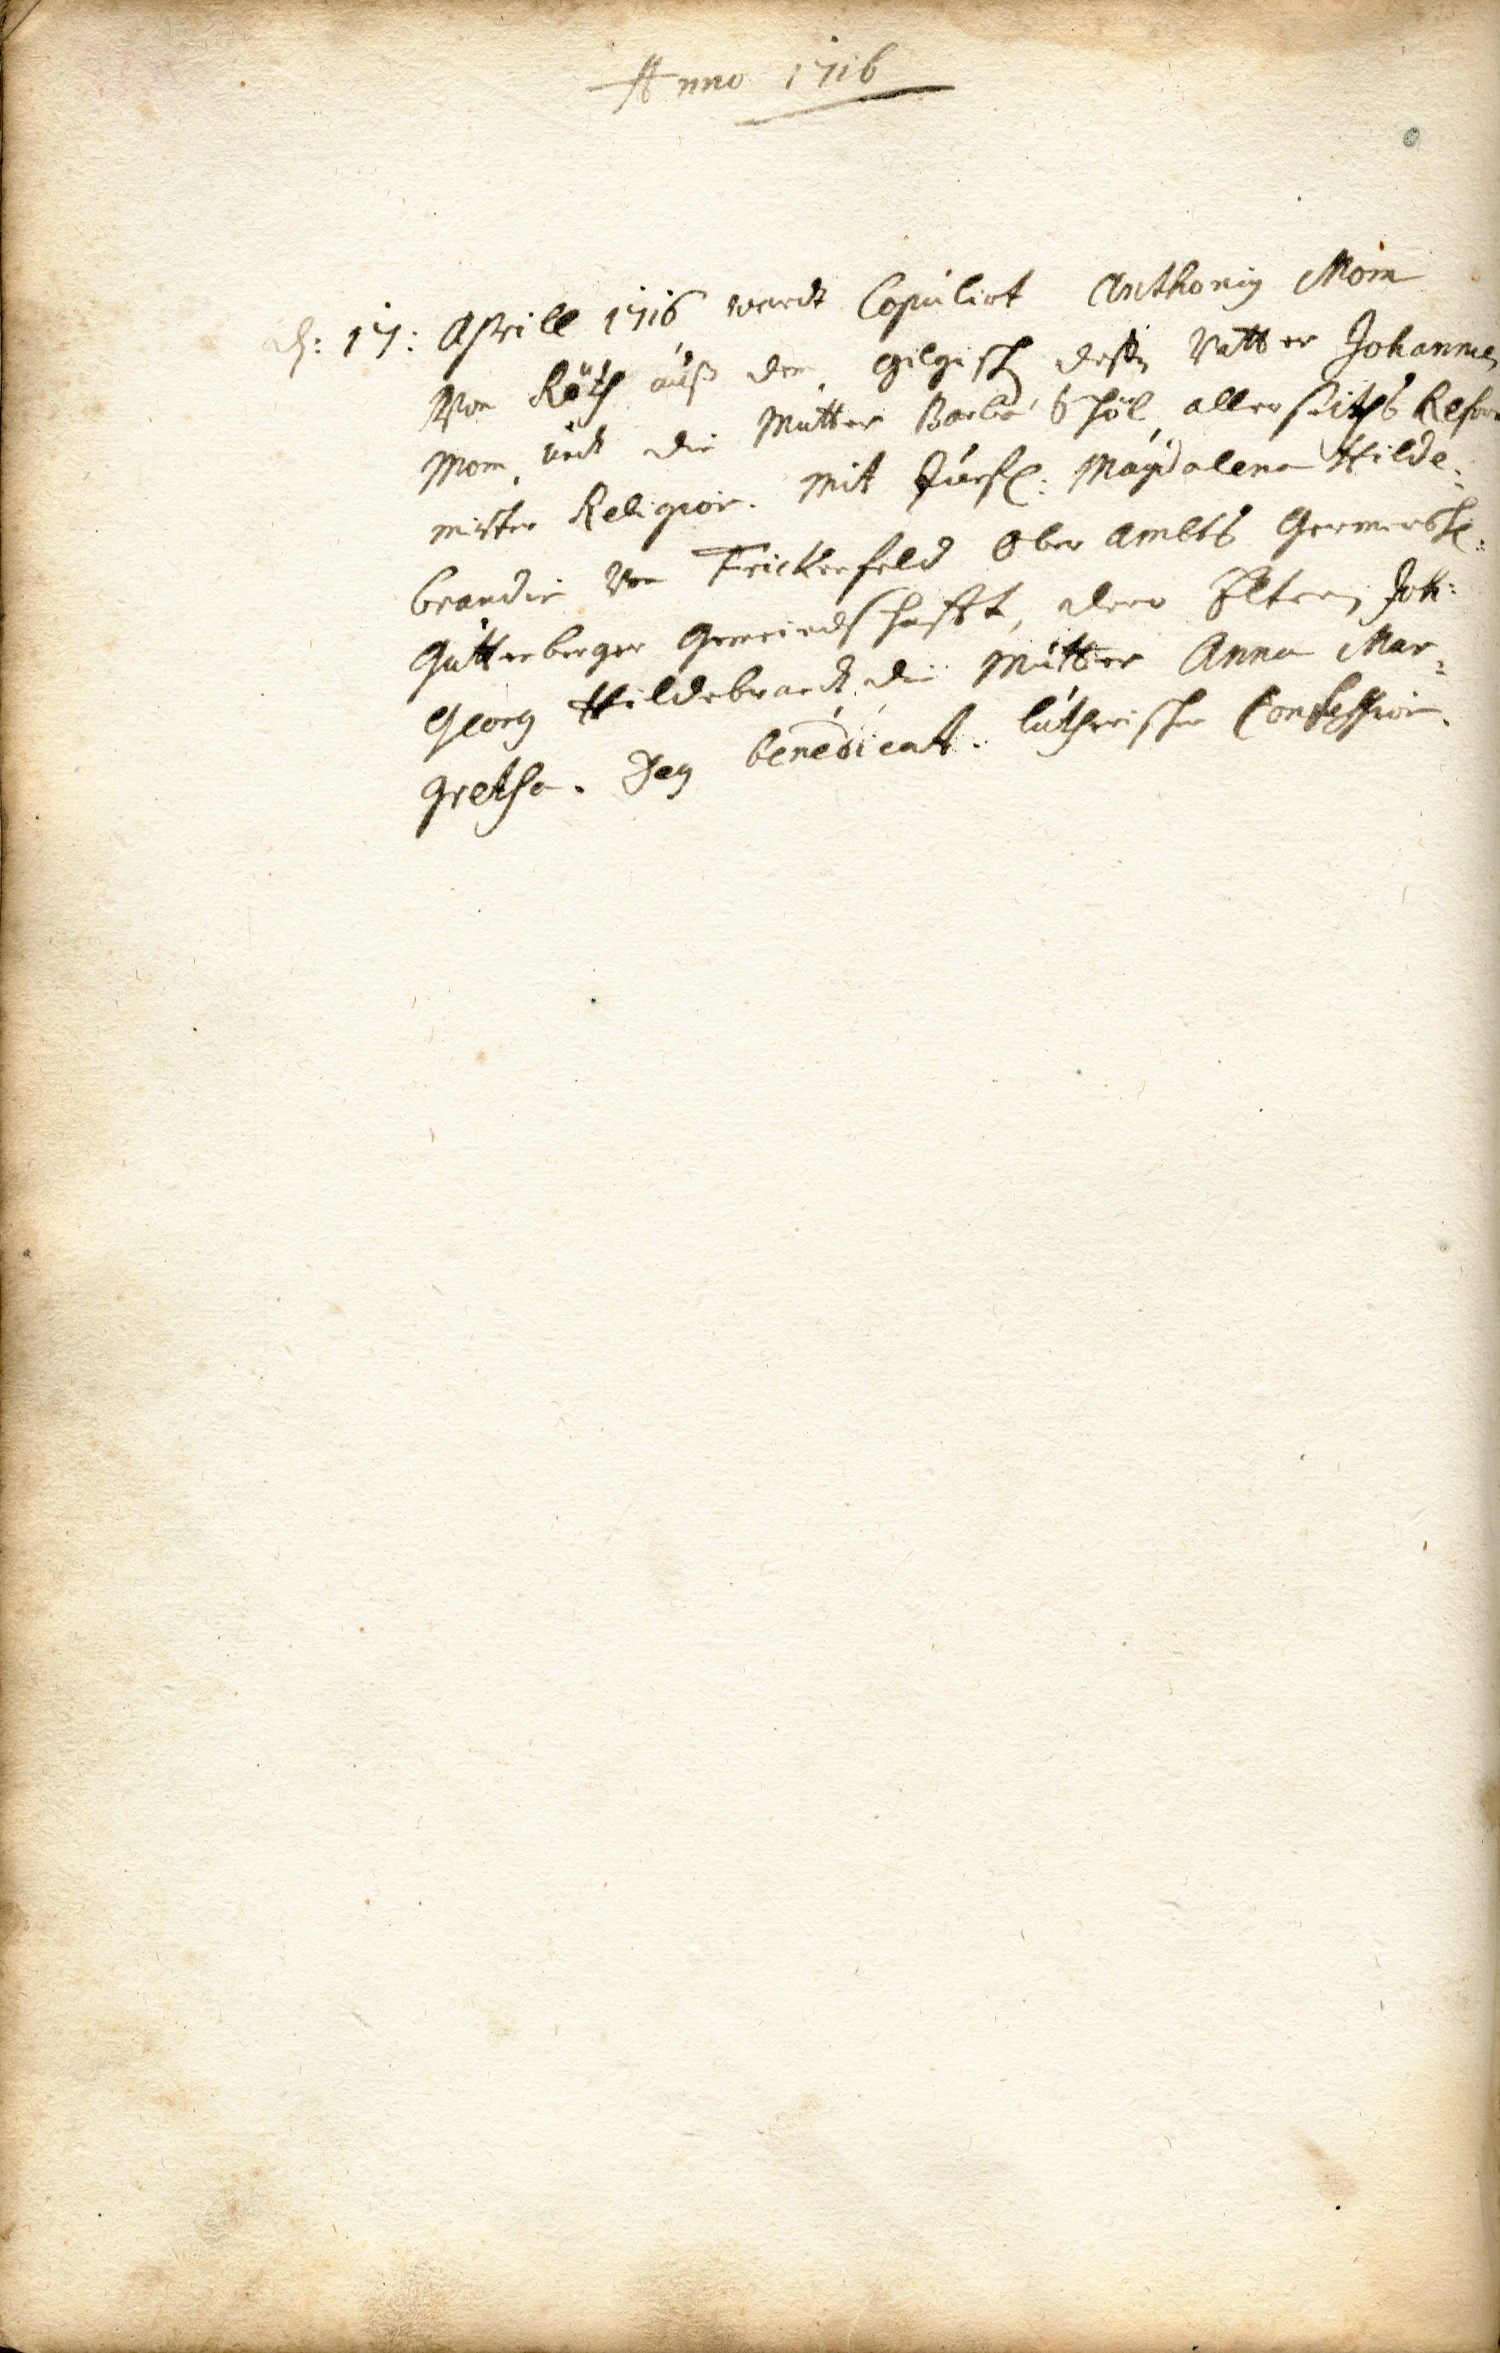 Anno 1716
d: 17: Aprill 1716 wardt Copulirt Anthonig Mom
Von Röth auß dem gilgisch dessen Vatter Johannes
Mom, undt die Mutter Barbra Schöl, allerseiths Refor
mirter Religion. Mit Jungf: Magdalena Hilde-
brandin Von Frickenfeld Ober Ambts Germersh:
Guttenberger Gemeindschafft, deren Eltern Joh:
Georg Hildebrandt, die Mutter Anna Mar-
gretha. Seg benedicat. lutherischer Confession.